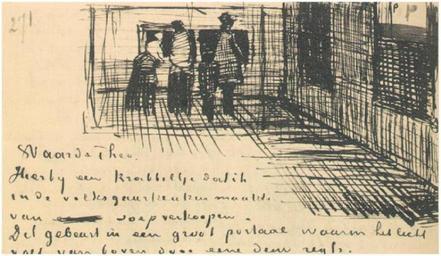 Waarde Theo.
Hierby een Krabbeltje dat ik
in de volksgaarkeuken maakte
van soepverkoopen.
Dit gebeurt in een groot portaal waarin het licht
valt van boven door eene deur regts.